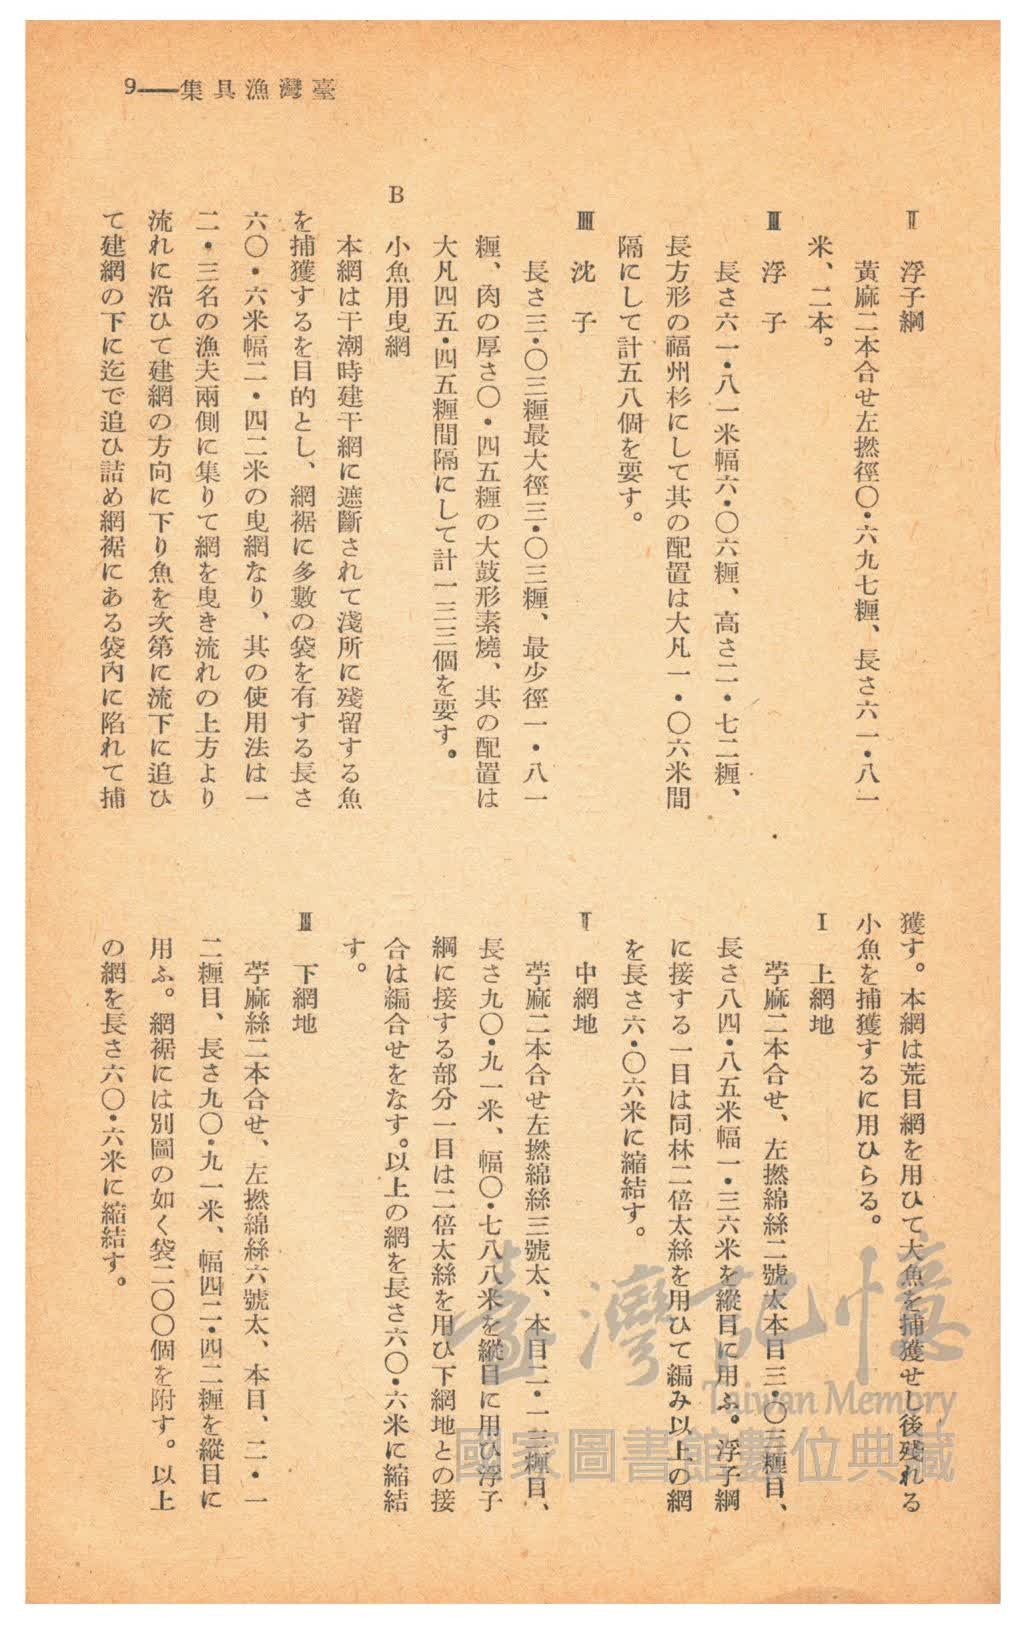 臺灣漁具集——9
Ⅱ 浮子綱
黃麻二本合せ左撚徑〇・六九七糎、長さ六一・八一
米、二本。
Ⅲ 浮子
長さ六一・八一米幅六・〇六糎、高さ二・七二糎、
長方形の福州杉にして其の配置は大凡一・〇六米間
隔にして計五八個を要す。
Ⅲ 沈子
長さ三・〇三糎最大徑三・〇三糎、最少徑一・八一
糎、肉の厚さ〇・四五糎の大鼓形素燒、其の配置は
大凡四五・四五糎間隔にして計一三三個を要す。
B 小魚用曳網
本網は干潮時建干網に遮斷されて淺所に殘留する魚
を捕獲するを目的とし、網裾に多數の袋を有する長さ
六〇・六米幅二・四二米の曳網なり、其の使用法は一
二・三名の漁夫兩側に集りて網を曳き流れの上方より
流れに沿ひて建網の方向に下り魚を次第に流下に追ひ
て建網の下に迄で追ひ詰め網裾にある袋內に陷れて捕
獲す。本網は荒目網を用ひて大魚を捕獲せし後殘れる
小魚を捕獲するに用ひらる。
Ⅰ 上網地
苧麻二本合せ、左撚綿絲二號太本目三・〇三糎目、
長さ八四・八五米幅一・三六米を縱目に用ふ。浮子綱
に接する一目は同林二倍太絲を用ひて編み以上の網
を長さ六・〇六米に縮結す。
Ⅱ 中網地
苧麻二本合せ左撚綿絲三號太、本目二・一三糎目、
長さ九〇・九一米、幅〇・七八八米を縱目に用ひ浮子
綱に接する部分一目は二倍太絲を用ひ下網地との接
合は編合せをなす。以上の網を長さ六〇・六米に縮結
す。
Ⅲ 下網地
苧麻絲二本合せ、左撚綿絲六號太、本目、二・一
二糎目、長さ九〇・九一米、幅四二・四二糎を縱目に
用ふ。網裾には別圖の如く袋二〇〇個を附す。以上
の網を長さ六〇・六米に縮結す。
臺灣記憶
Taiwan Memory
國家圖書館數位典藏